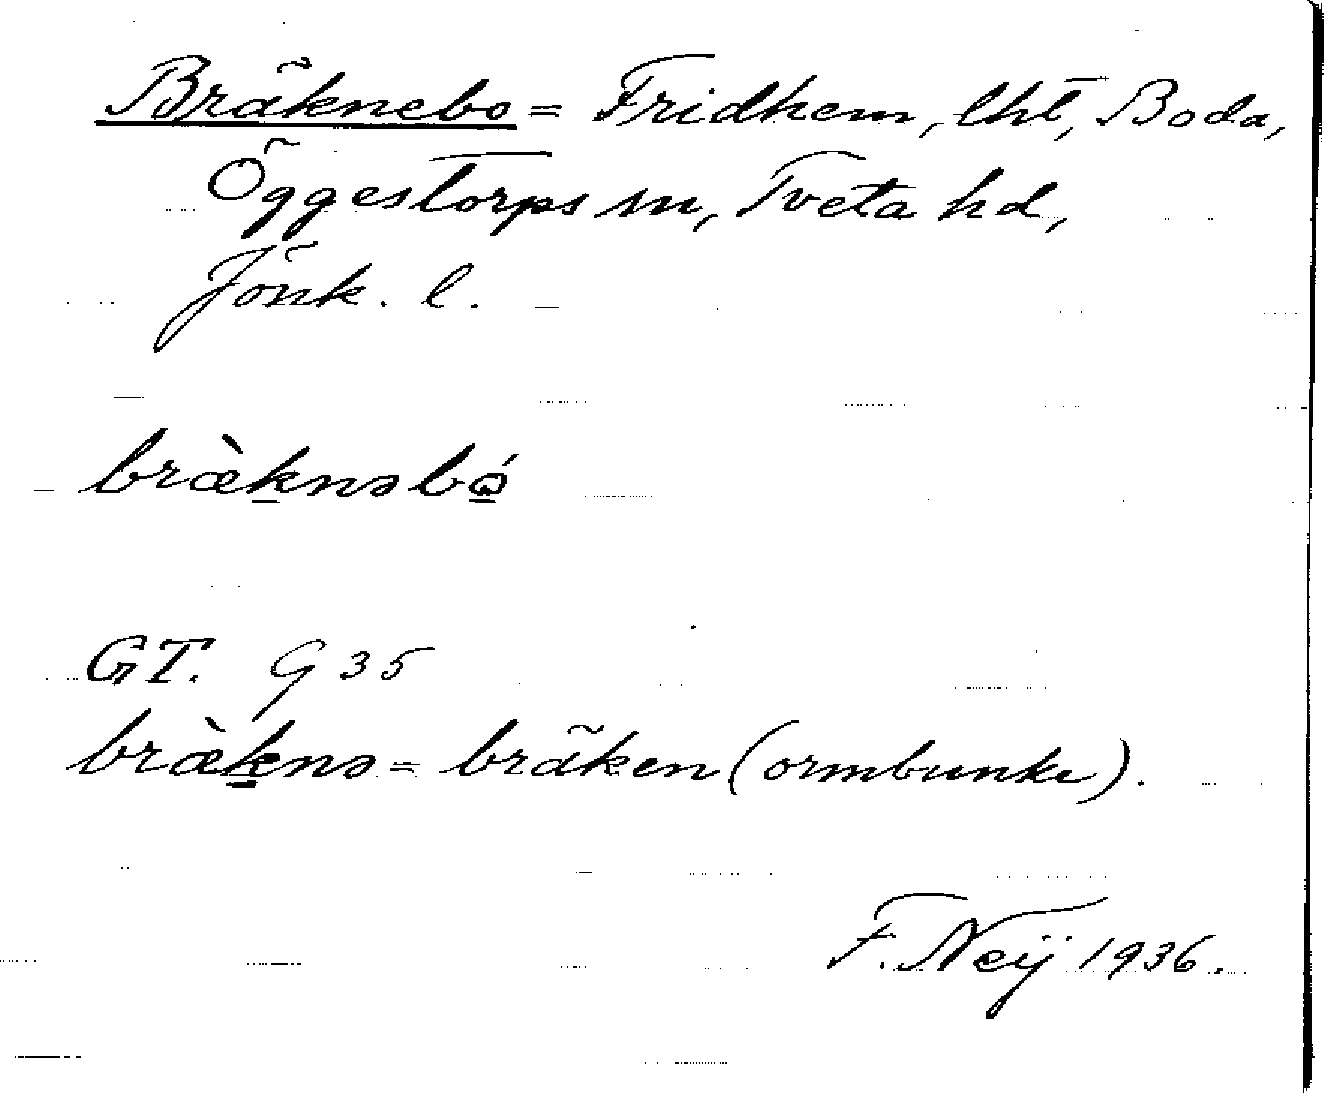 Bräknebo = Fridhem, lht, Boda,
Öggestorps sn, Tveta hd,
Jönk. l.
bræ̀knəbǫ́
GT. G 35
bræ̀knə = bräken (ormbunke).
F. Neij 1936.